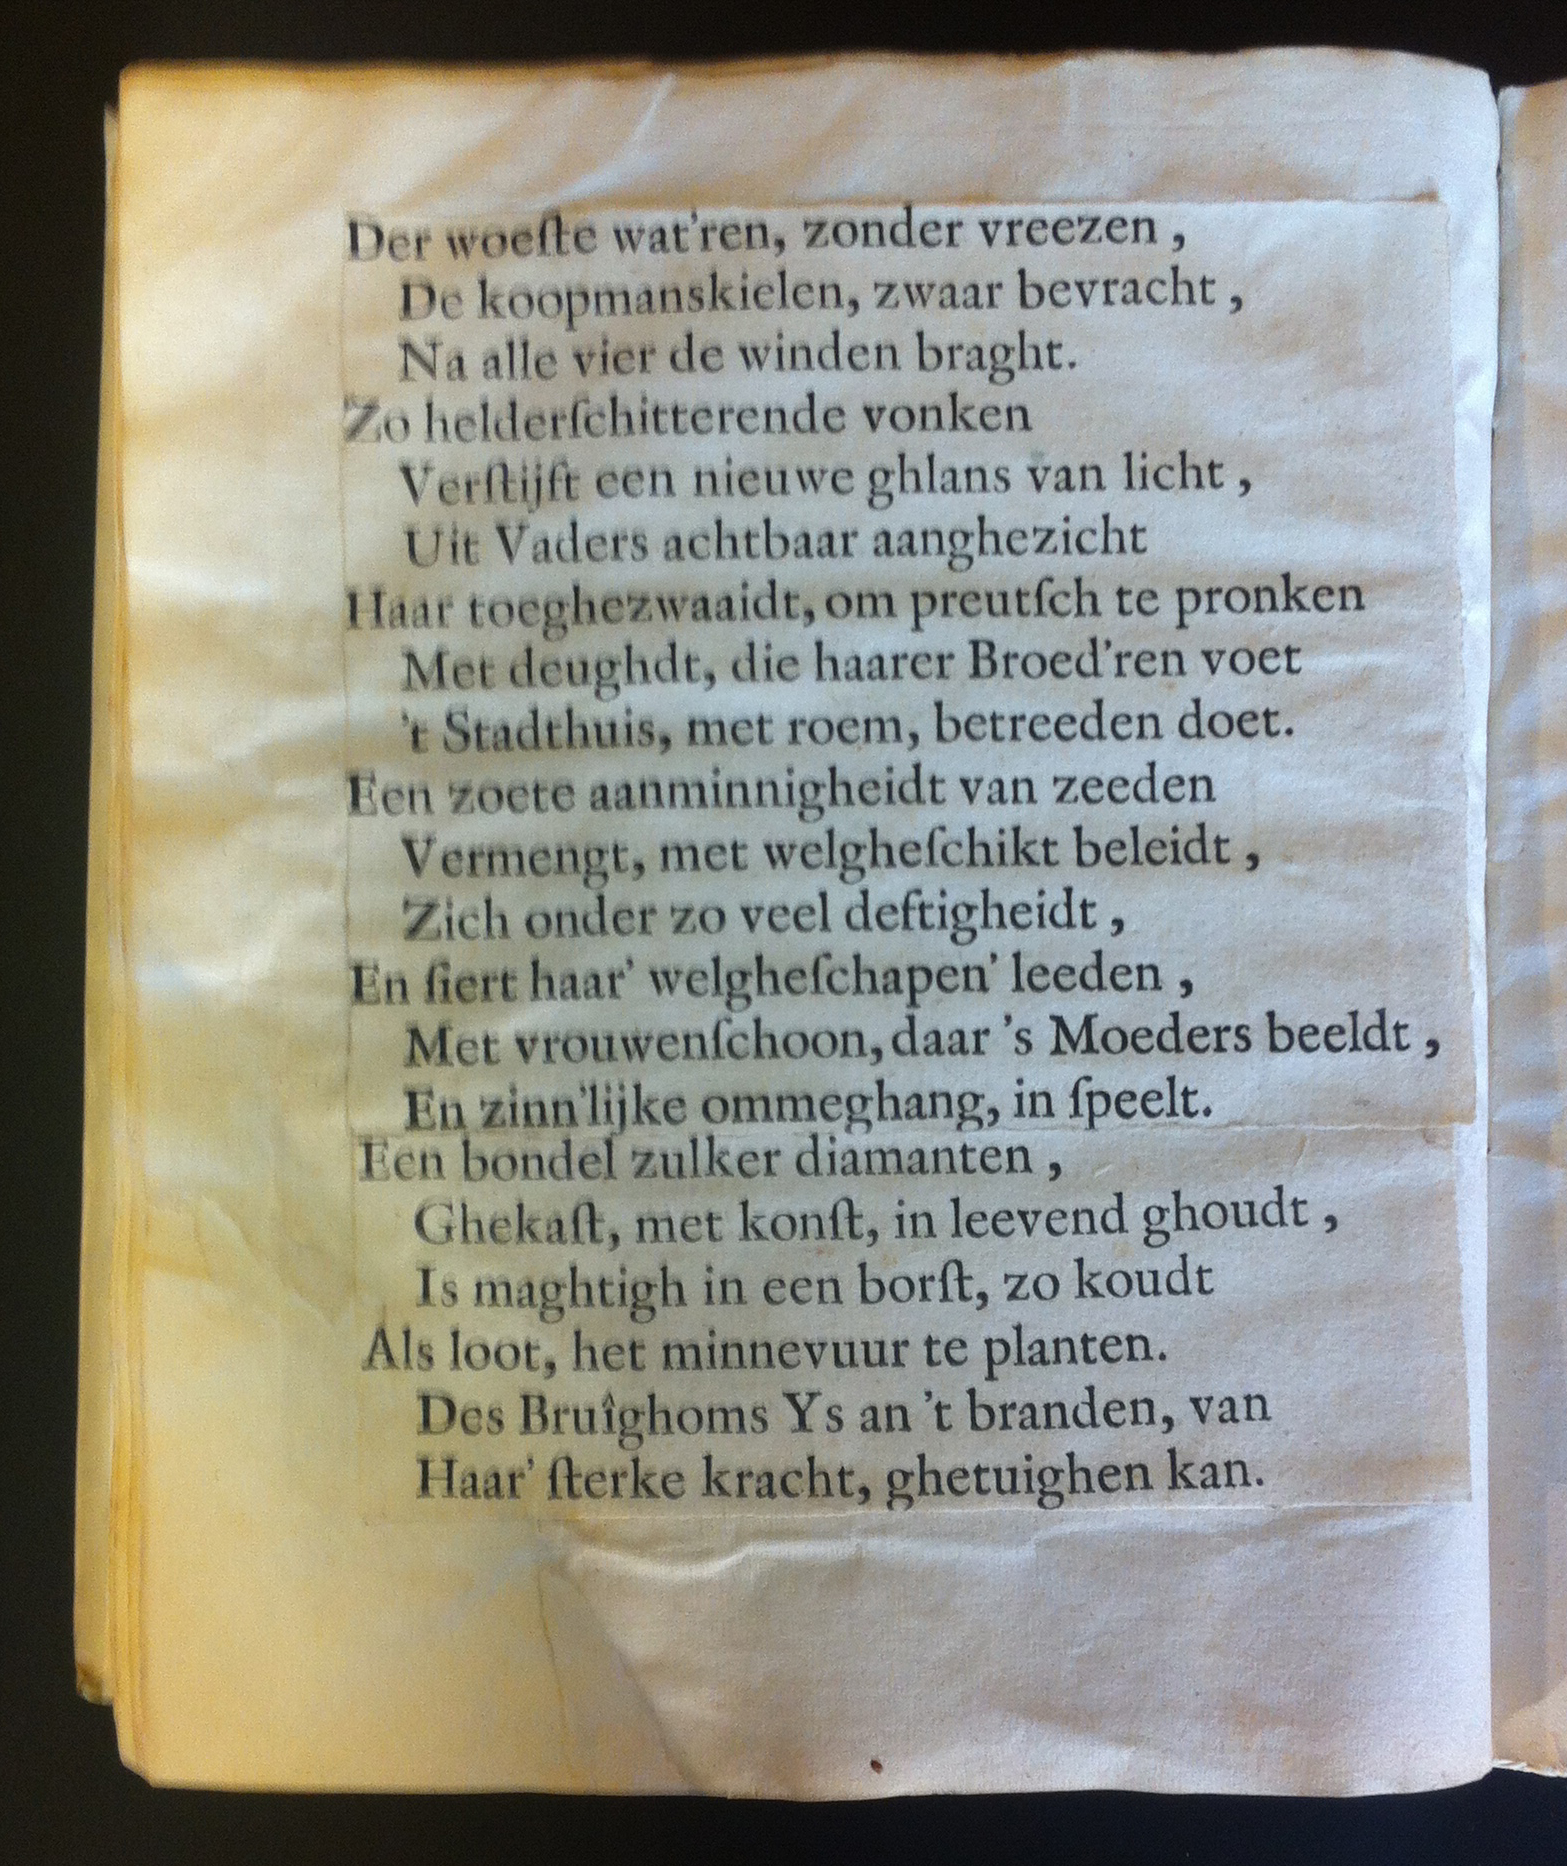 Der woeſte wat'ren, zonder vreezen,
De koopmanskielen, zwaar bevracht,
Na alle vier de winden braght.
Zo helderſchitterende vonken
Verſtijft een nieuwe ghlans van licht,
Uit Vaders achtbaar aanghezicht
Haar toeghezwaaidt, om preutſch te pronken
Met deughdt, die haarer Broed'ren voet
't Stadthuis, met roem, betreeden doet.
Een zoete aanminnigheidt van zeeden
Vermengt, met welgheſchikt beleidt,
Zich onder zo veel deftigheidt,
En ſiert haar' welgheſchapen' leeden,
Met vrouwenſchoon, daar 's Moeders beeldt,
En zinn'lijke ommeghang, in ſpeelt.
Een bondel zulker diamanten,
Ghekaſt, met konſt, in leevend ghoudt,
Is maghtigh in een borſt, zo koudt
Als loot, het minnevuur te planten.
Des Bruîghoms Ys an 't branden, van
Haar' ſterke kracht, ghetuighen kan.